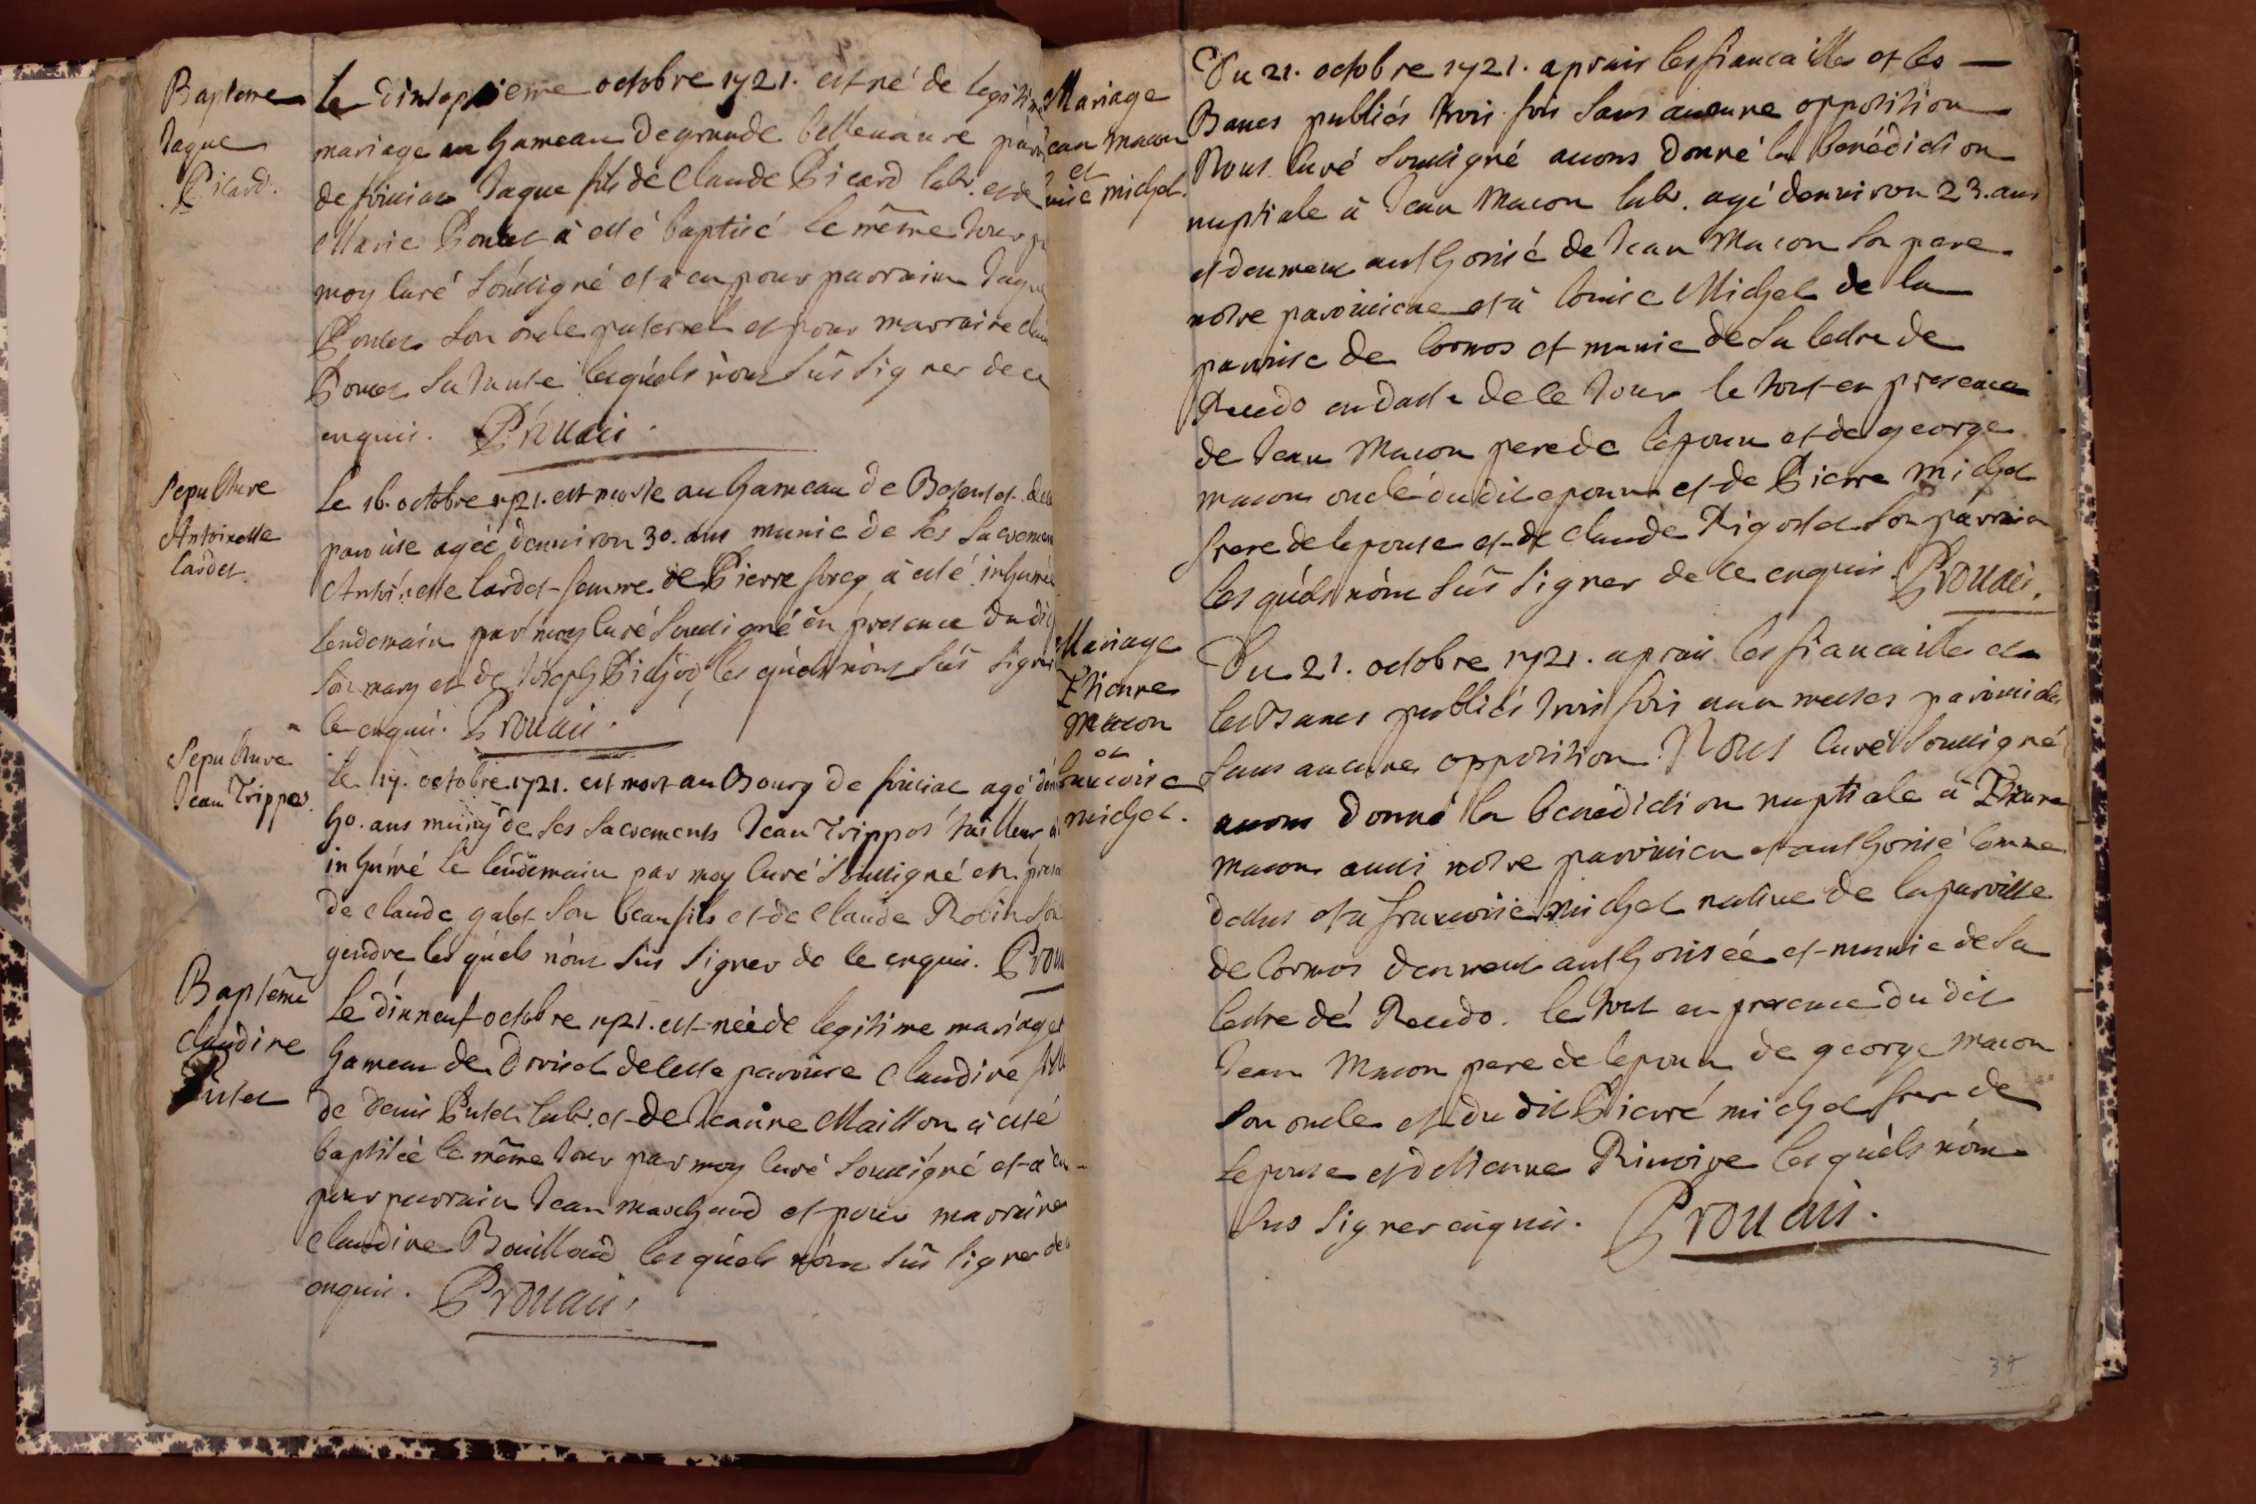 Bapteme
Jaque
Picard.
Le dixseptieme octobre 1721. est né de legitime
mariage au hameau de grande bellenause
de foissiat Jaque fils de Claude Picard labr. et de
Marie Ponset à esté baptisé le même Jour
moy Curé soussigné et a eu pour parrain Jaque
son oncle paternel et pour marraine
Ponset sa tante lesquels n'ont sus signer de ce
enquis. Prouais.
Sepulture
Antoinette
Cardet
Le 16. octobre 1721. est morte au hameau de
paroisse agée d'environ 30. ans munie de ses sacremens
Antoinette Cardet femme de Pierre à esté inhumée
lendemain par moy Curé soussigné en presence dudit
son mary et de Joseph Pidjod lesquels n'ont sus signer
ce enquis. Prouais.
Sepulture
Jean Trippoz.
Le 17. octobre 1721. est mort au Bourg de foissiat agé
60. ans muny de ses sacrements Jean Trippoz tailleur à
inhumé le lendemain par moy Curé soussigné en
de Claude gabet son beaufils et de Claude Robin son
gendre lesquels n'ont sus signer de ce enquis.
Baptême
Claudine
Putet
Le dixneuf octobre 1721. est née de legitime mariage
hameau de de cette paroisse Claudine fille
de Denis Putet labr. et de Jeanne Maillon à esté
baptisée le même Jour par moy Curé soussigné et a eu
pour parrain Jean marchand et pour marraine
Claudine Bouilloud lesquels n'ont sus signer de
enquis. Prouais.
Mariage
Jean macon
et
Louise michel.
Du 21. octobre 1721. aprais les fiancailles et les
Bancs publiés trois fois sans aucune opposition
Nous Curé soussigné avons donné la bénédiction
nuptiale à Jean Macon labr. agé d'environ 23. ans
et deument authorisé de Jean Macon son pere
notre paroissien et à Louise Michel de la
paroisse de Cormos et munie de sa lettre de
Recedo en datte de ce Jour le tout en presence
de Jean Macon pere de l'epoux et de george
macon oncle du dit epoux et de Pierre michel
frere de l'epouse et de Claude Rigottet son parrain
lesquels n'ont sus signer de ce enquis. Prouais.
Mariage
Etienne
Macon
et
francoise
michel.
Du 21. octobre 1721. aprais les fiancailles et
les Bancs publiés trois fois aux messes paroissiales
sans aucune opposition. Nous Curé soussigné
avons donné la bénédiction nuptiale à Etienne
macon aussi notre paroissien et authorisé comme
dessus et a francoise michel native de la paroisse
de Cormos deument authorisée et munie de sa
lettre de Recedo. le tout en presence du dit
Jean Macon pere de l'epoux de george macon
son oncle et du dit Pierre michel frere de
l'epouse et d'etienne lesquels n'ont
sus signer enquis. Prouais.